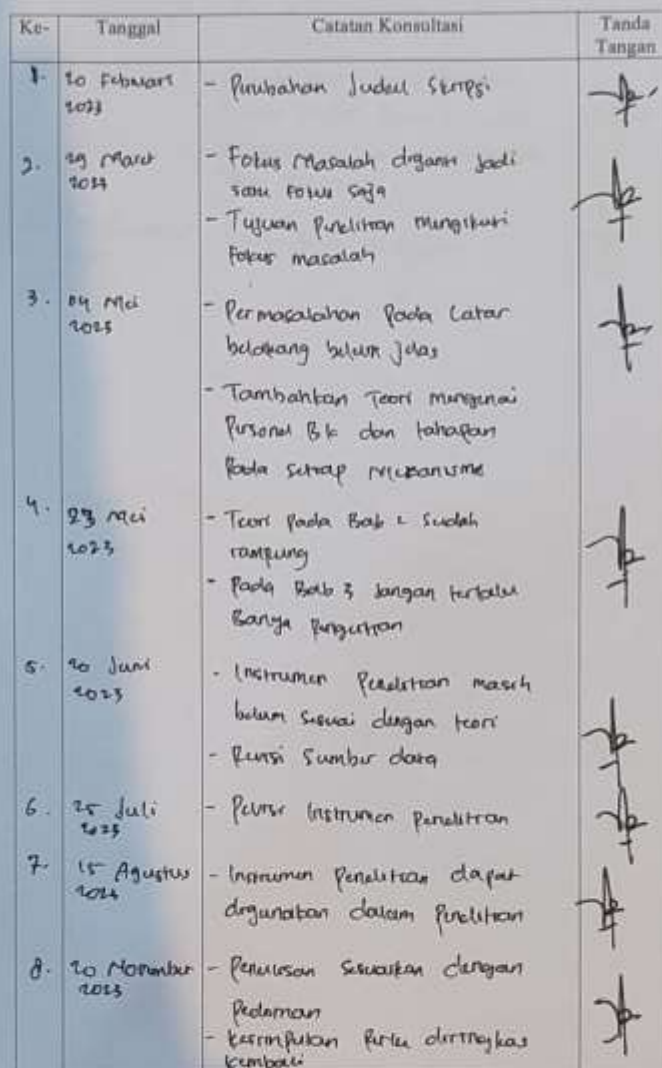 Ke- Tanggal Catatan Konsultasi Tanda
Tangan
1. 20 Februari - Perubahan Judul Skripsi
2023
2. 29 Maret - Fokus Masalah diganti jadi
satu Fokus saja
- Tujuan Penelitian mengikuti
Fokus masalah
3. 04 Mei - Permasalahan Pada Latar
2023 belakang belum jelas
- Tambahkan Teori mengenai
Personel BK dan tahapan
Pada setiap Mekanisme
4. 23 Mei - Teori Pada Bab 2 Sudah
2023 rampung
- Pada Bab 3 Jangan terlalu
Banya Pengertian
5. 20 Juni - Instrumen Penelitian masih
2023 belum sesuai dengan teori
- Revisi Sumber data
6. 25 Juli - Revisi Instrumen Penelitian
2023
7. 15 Agustus - Instrumen Penelitian dapat
digunakan dalam Penelitian
8. 20 November - Penulisan Sesuaikan dengan
2023 Pedoman
- Kesimpulan Perlu diringkas
kembali